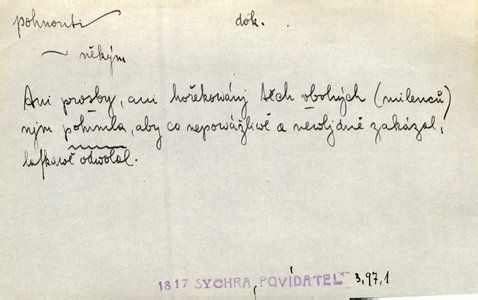 pohnouti dok.
~ někým
Ani prosby, ani hořekowánj těch obolných (milenců)
njm pohnula, aby co nepowážliwě a newljdně zakázal,
laskawě odwolal.
1817 SYCHRA, POVÍDATEL 3,97,1